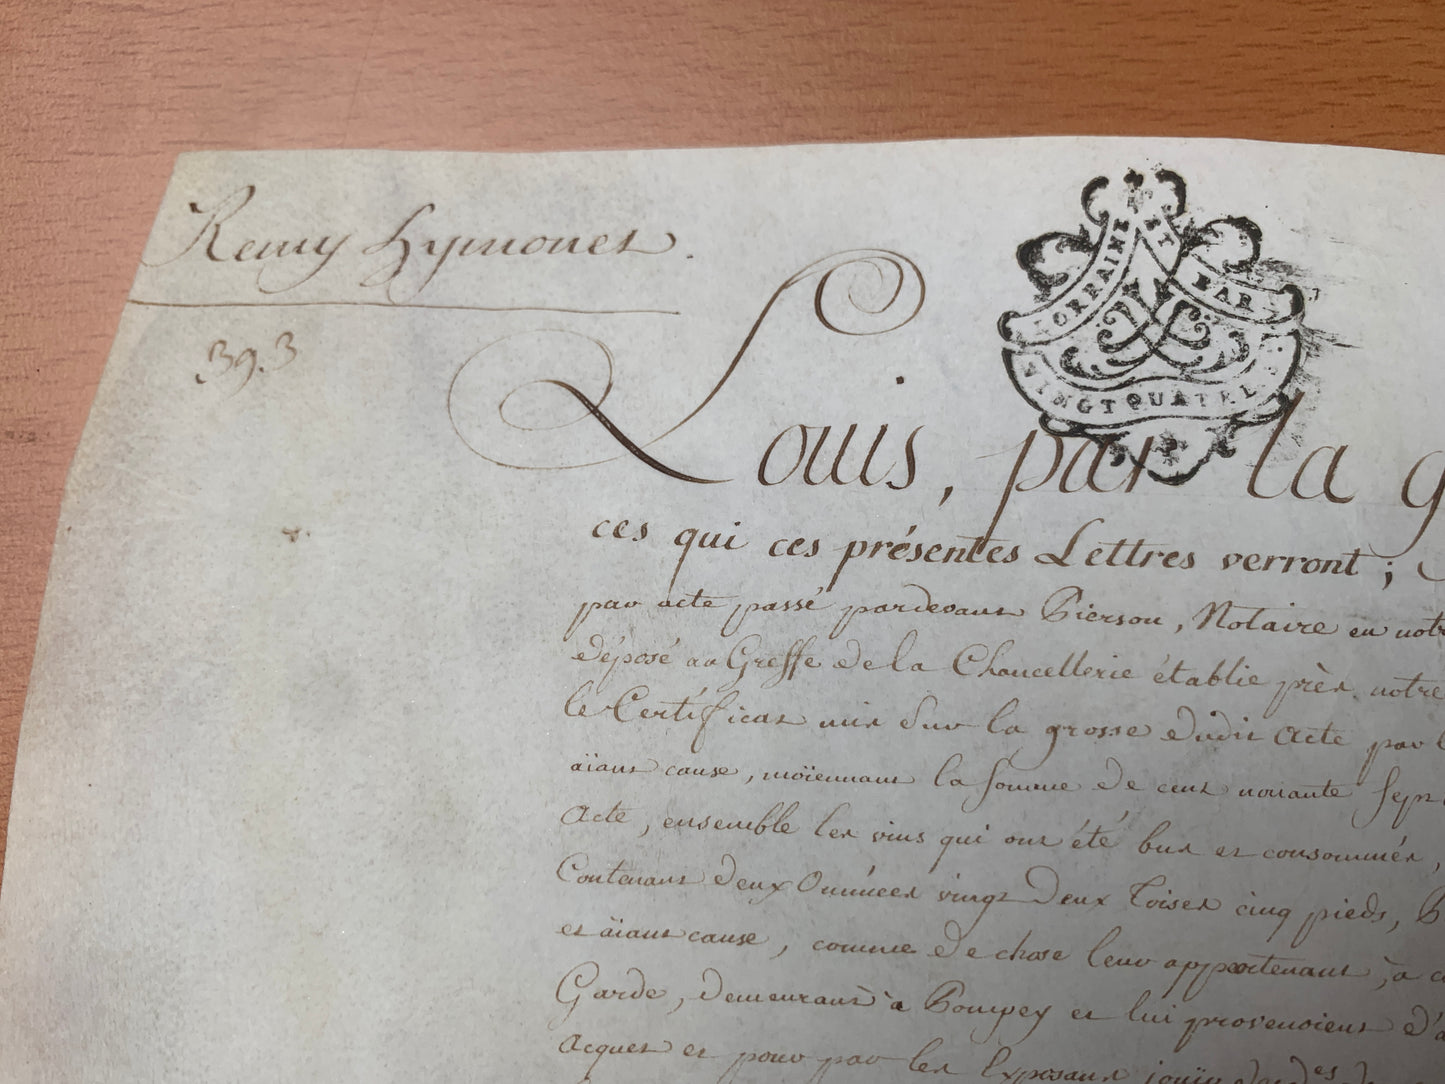 Remy Hymonet.
393
LORRAINE ET BAR
VINGT QUATRE S.
Louis, par la g
ces qui ces présentes Lettres verront;
par acte passé pardevant Pierson, Notaire en notre
déposé au Greffe de la Chancellerie établie près notre
le Certificat mis Sur la grosse dudit Acte par
aïant cause, moïennant la Somme de cent nonante Sept
Acte, ensemble les vins qui ont été bus et consommés,
Contenant deux Ommées vingt Deux Toises cinq pieds,
et aïant cause, comme de chose leur appartenant, à
Garde, demeurant à Pompey et lui provenoient d'a
Acquet et pour par les Exposans joüir